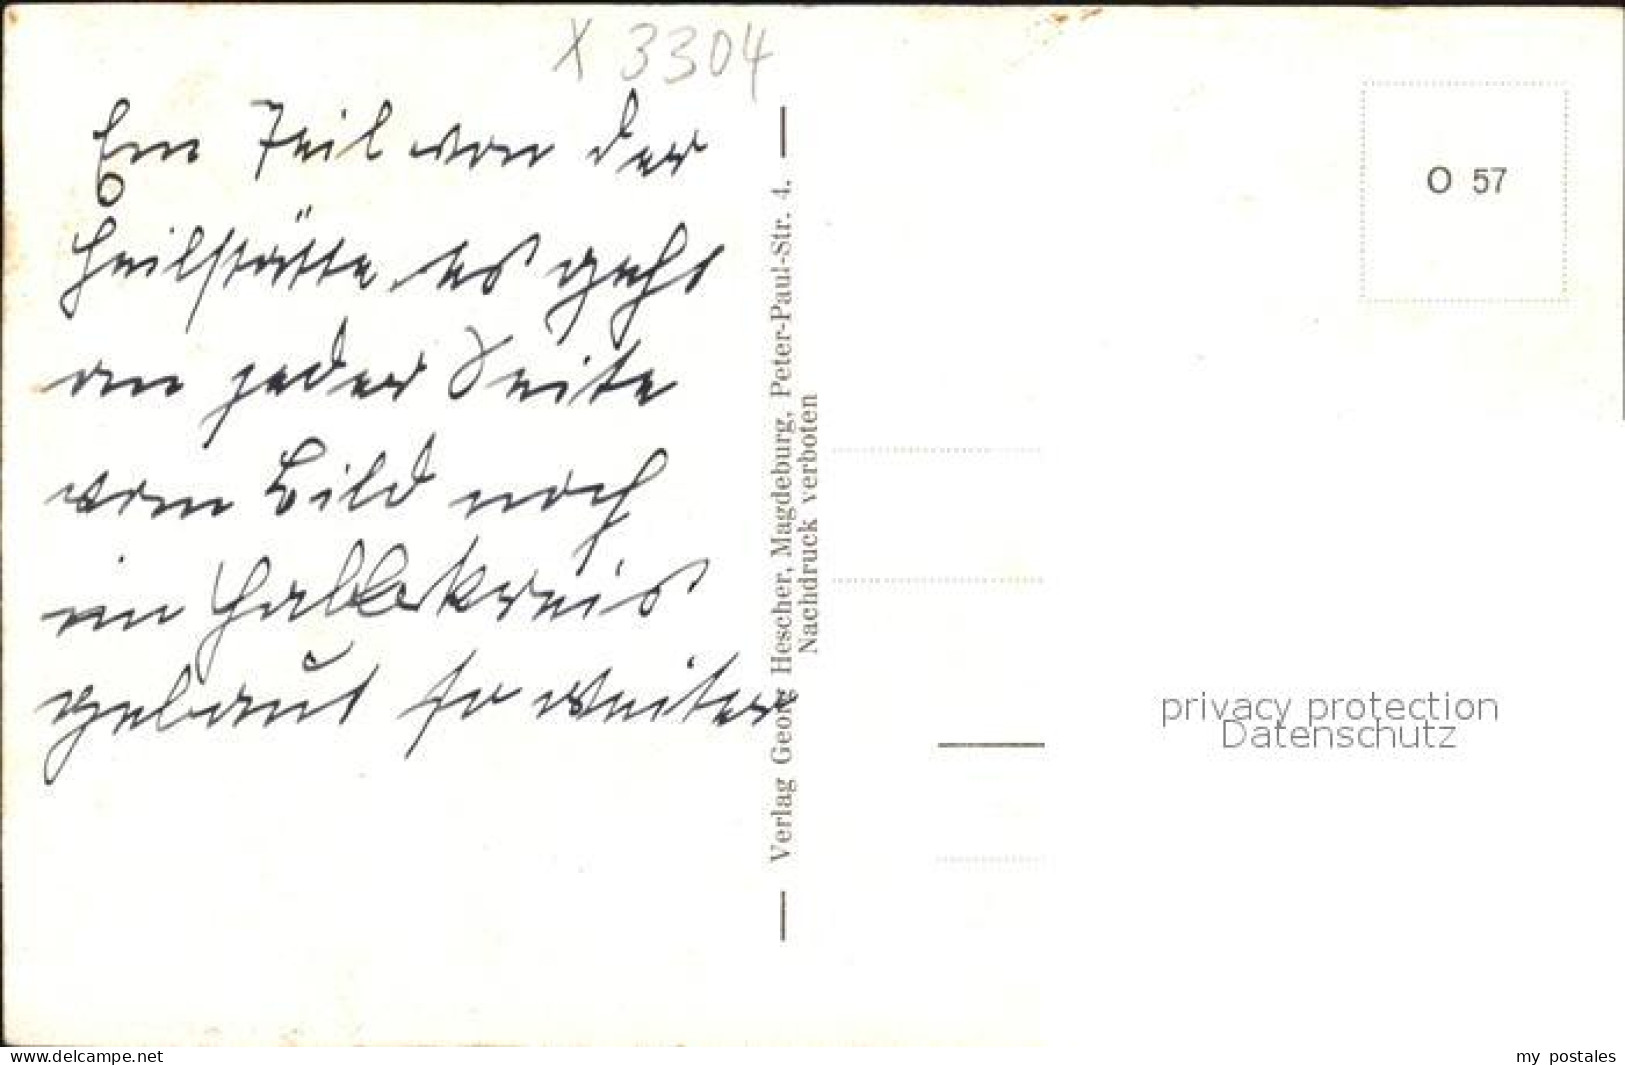 X 3304
Ein Teil von der
Heilstätte es geht
an jeder Seite
vom Bild noch
im Halbkreis
gebaut so weiter
Verlag Georg Hescher, Magdeburg, Peter-Paul-Str. 4.
Nachdruck verboten
O 57
privacy protection
Datenschutz
www.delcampe.net
my_postales